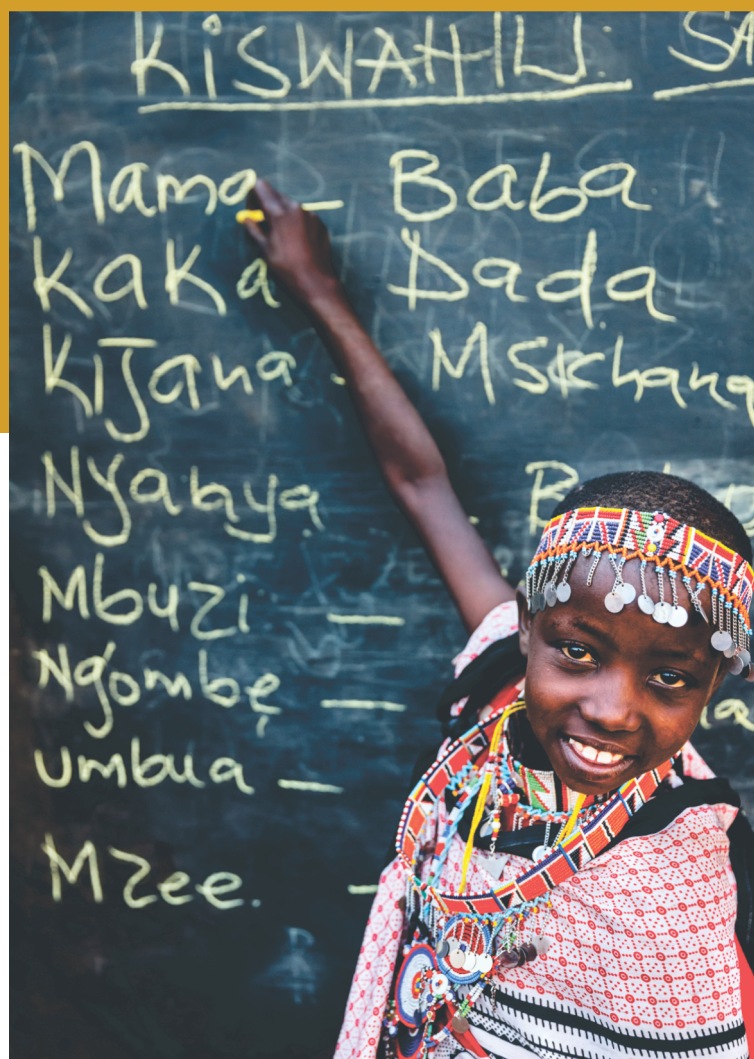 KISWAHILI: SA
Mama - Baba
Kaka Dada
Kijana - Msichana
Nyanya - B
Mbuzi —
Ng'ombe —
Umbua —
Mzee. —